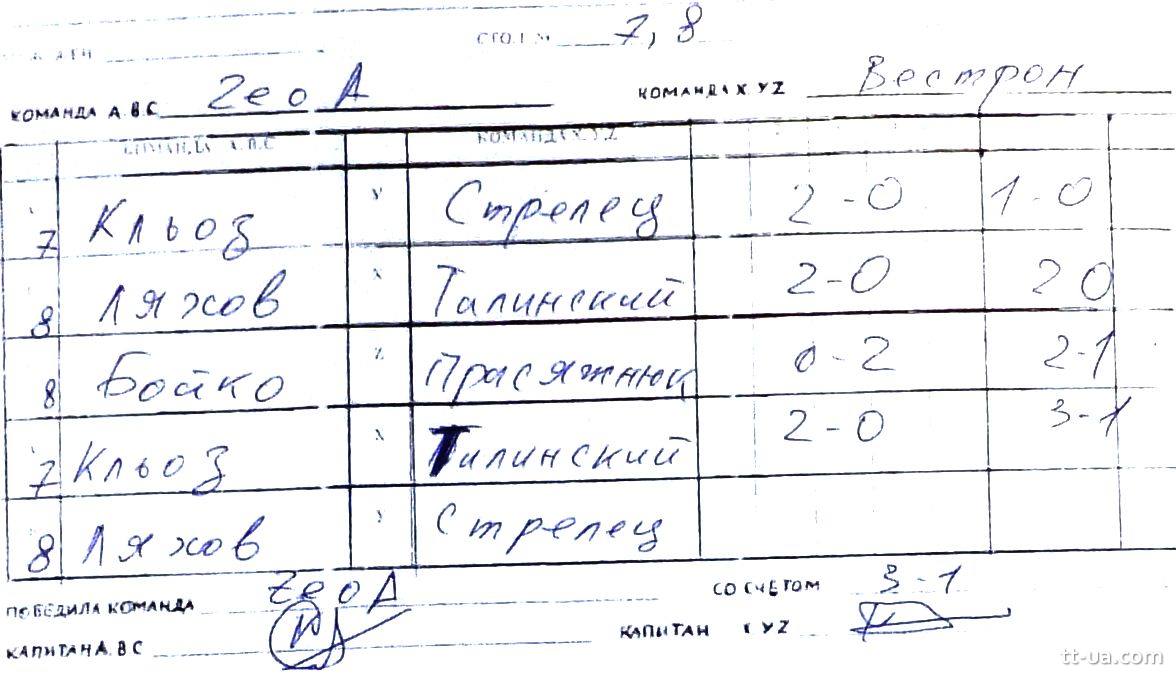 СТОЛ № 7, 8
КОМАНДА А.В.С Zeo A КОМАНДА X.YZ Вестрон
КОМАНДА А.В.С КОМАНДА X.Y.Z
7 Кльоз Стрелец 2-0 1-0
8 Ляхов x Талинский 2-0 2 0
8 Бойко Присяжнюк 0-2 2-1
7 Кльоз x Талинский 2-0 3-1
8 Ляхов Стрелец
ПОБЕДИЛА КОМАНДА Zeo A СО СЧЕТОМ 3-1
КАПИТАН А.В С КАПИТАН X YZ
tt-ua.com